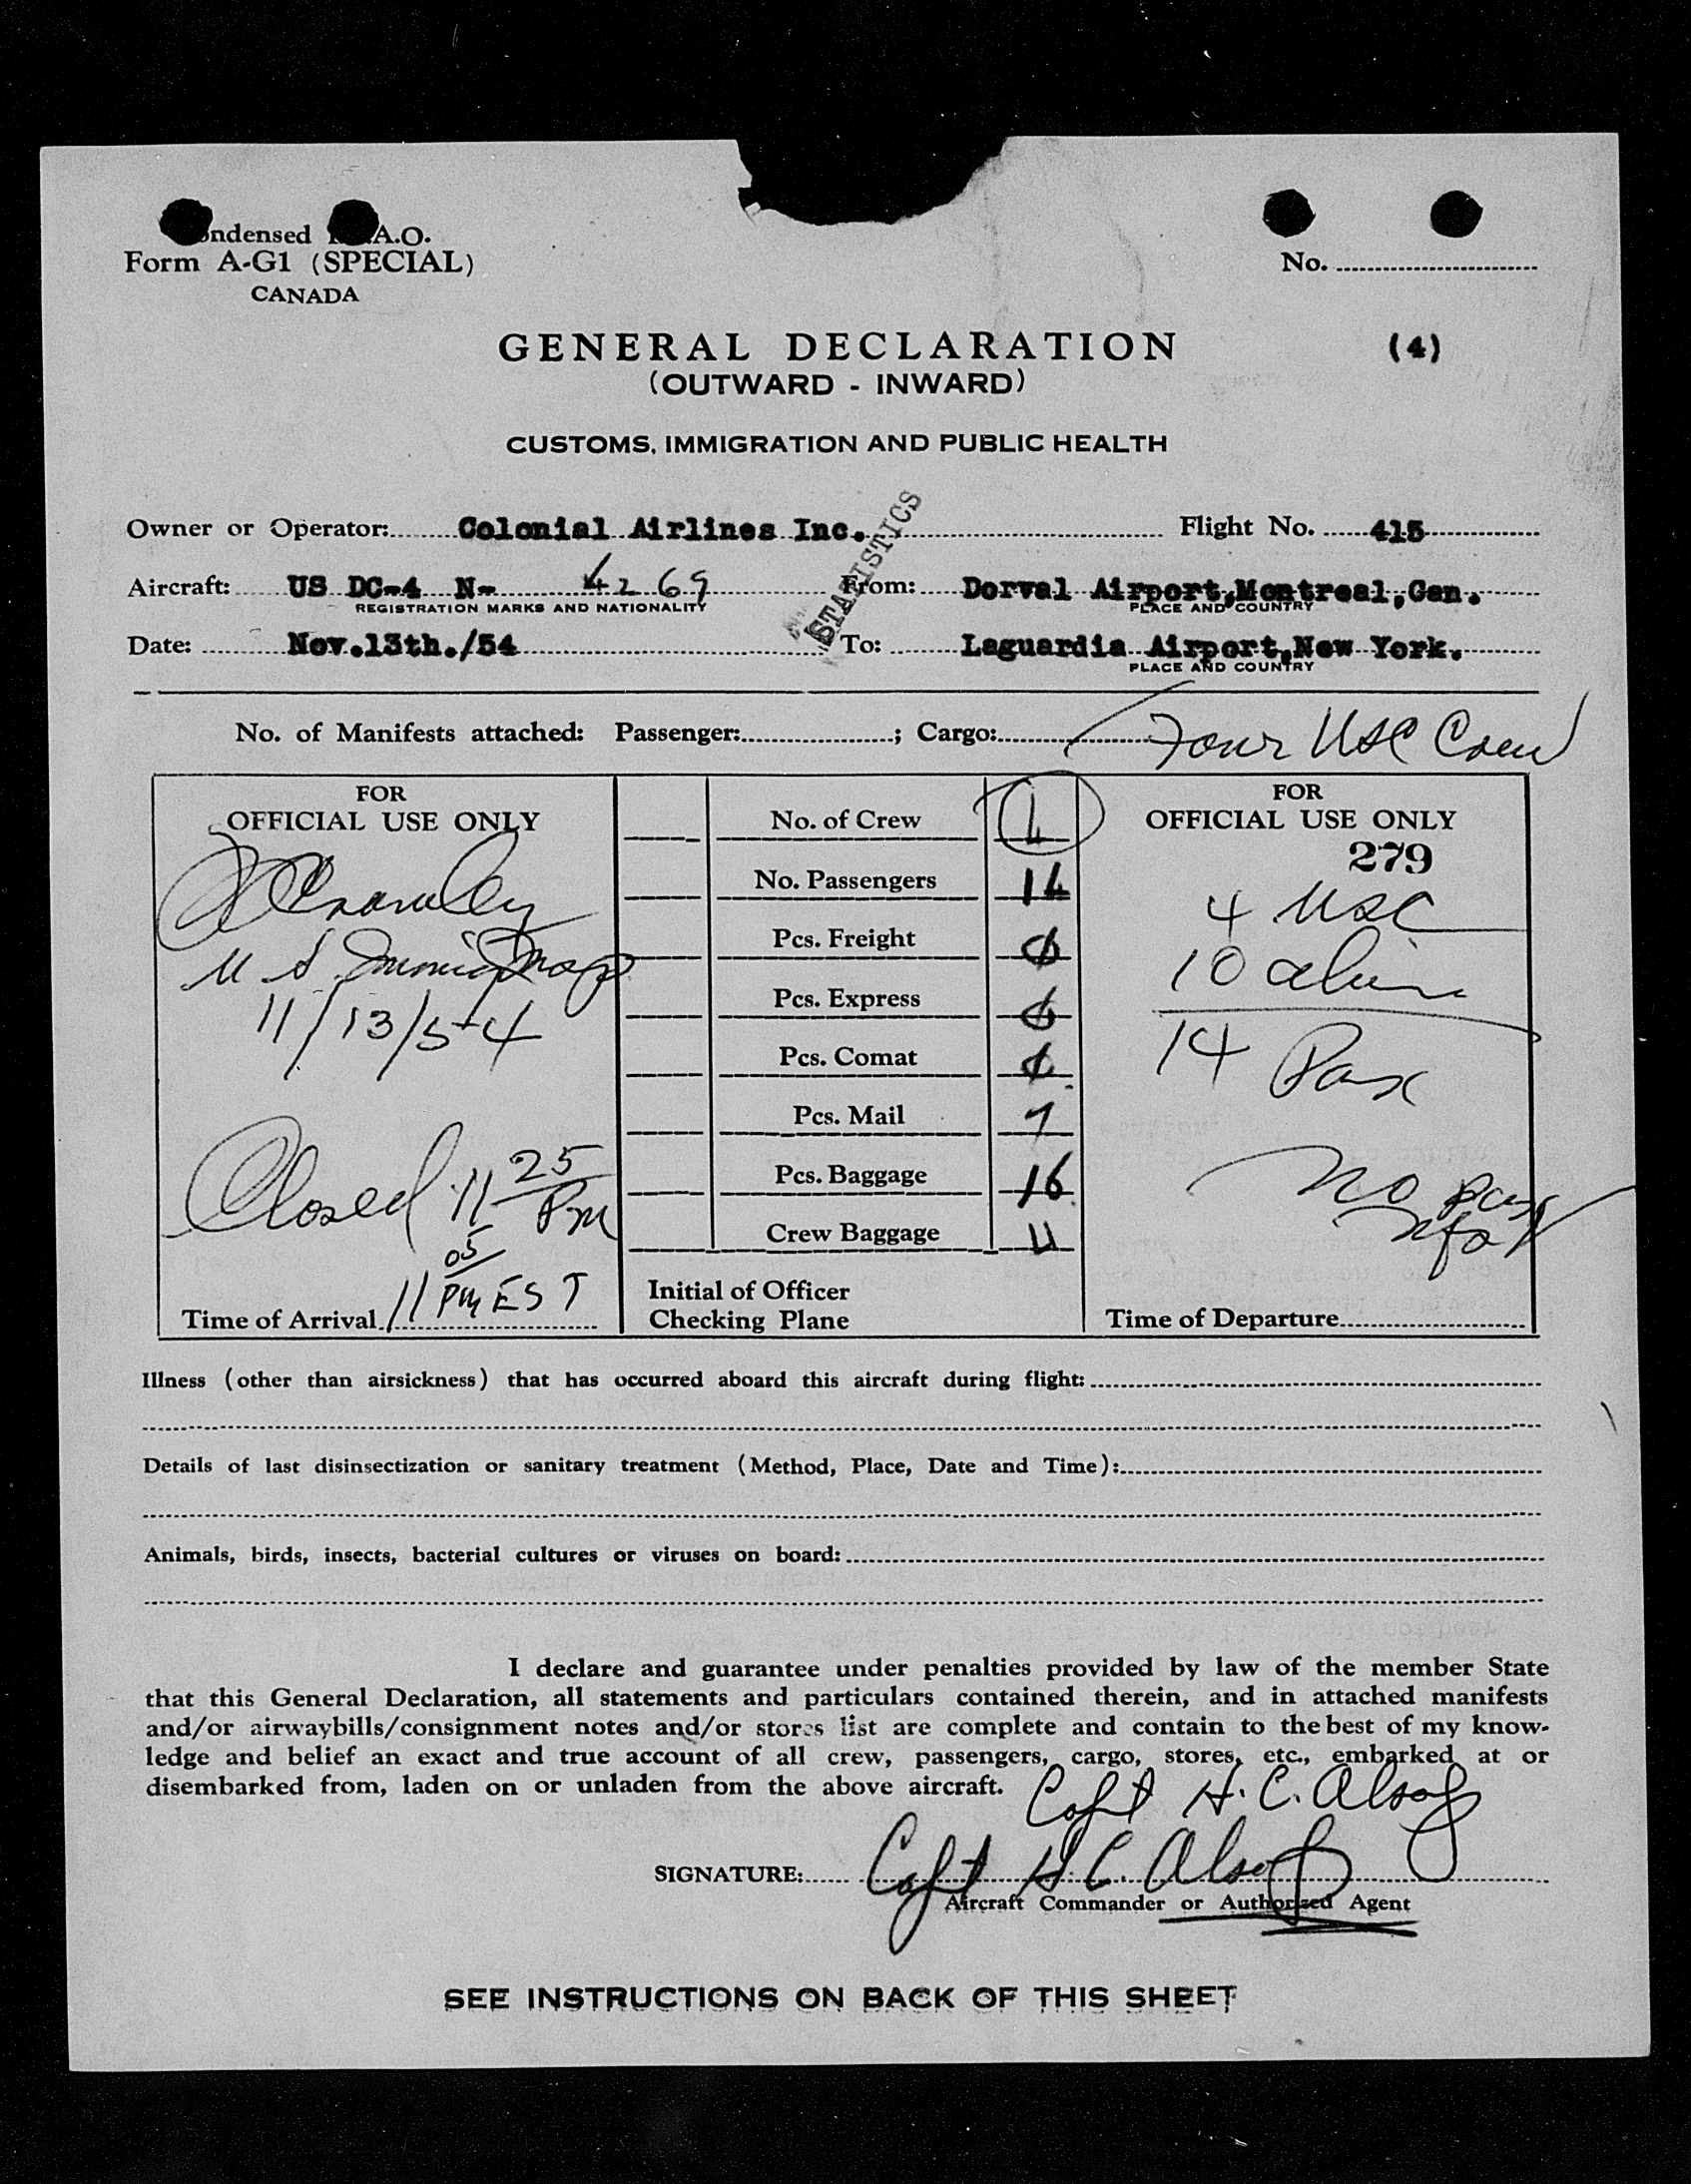 ndensed A.O.
Form A-G1 (SPECIAL)
CANADA
No.
GENERAL DECLARATION (4)
(OUTWARD - INWARD)
CUSTOMS, IMMIGRATION AND PUBLIC HEALTH
STATISTICS
Owner or Operator: Colonial Airlines Inc. Flight No. 415
Aircraft: US DC-4 N- 4269 From: Dorval Airport,Montreal,Can.
REGISTRATION MARKS AND NATIONALITY PLACE AND COUNTRY
Date: Nov.13th./54 To: Laguardia Airport,New York.
PLACE AND COUNTRY
No. of Manifests attached: Passenger: ; Cargo: Four USC Crew
FOR
OFFICIAL USE ONLY
U S
11/13/54
Closed 11 25 Pm
11 05 PM EST
Time of Arrival
No. of Crew 4
No. Passengers 14
Pcs. Freight
Pcs. Express
Pcs. Comat
Pcs. Mail 7
Pcs. Baggage 16
Crew Baggage 4
Initial of Officer
Checking Plane
FOR
OFFICIAL USE ONLY
279
4 USC
10 alien
14 Pax
No
Time of Departure
Illness (other than airsickness) that has occurred aboard this aircraft during flight:
Details of last disinsectization or sanitary treatment (Method, Place, Date and Time):
Animals, birds, insects, bacterial cultures or viruses on board:
I declare and guarantee under penalties provided by law of the member State
that this General Declaration, all statements and particulars contained therein, and in attached manifests
and/or airwaybills/consignment notes and/or stores list are complete and contain to the best of my know-
ledge and belief an exact and true account of all crew, passengers, cargo, stores, etc., embarked at or
disembarked from, laden on or unladen from the above aircraft.
Capt H. C. Alsop
SIGNATURE: Capt H. C. Alsop
Aircraft Commander or Authorized Agent
SEE INSTRUCTIONS ON BACK OF THIS SHEET